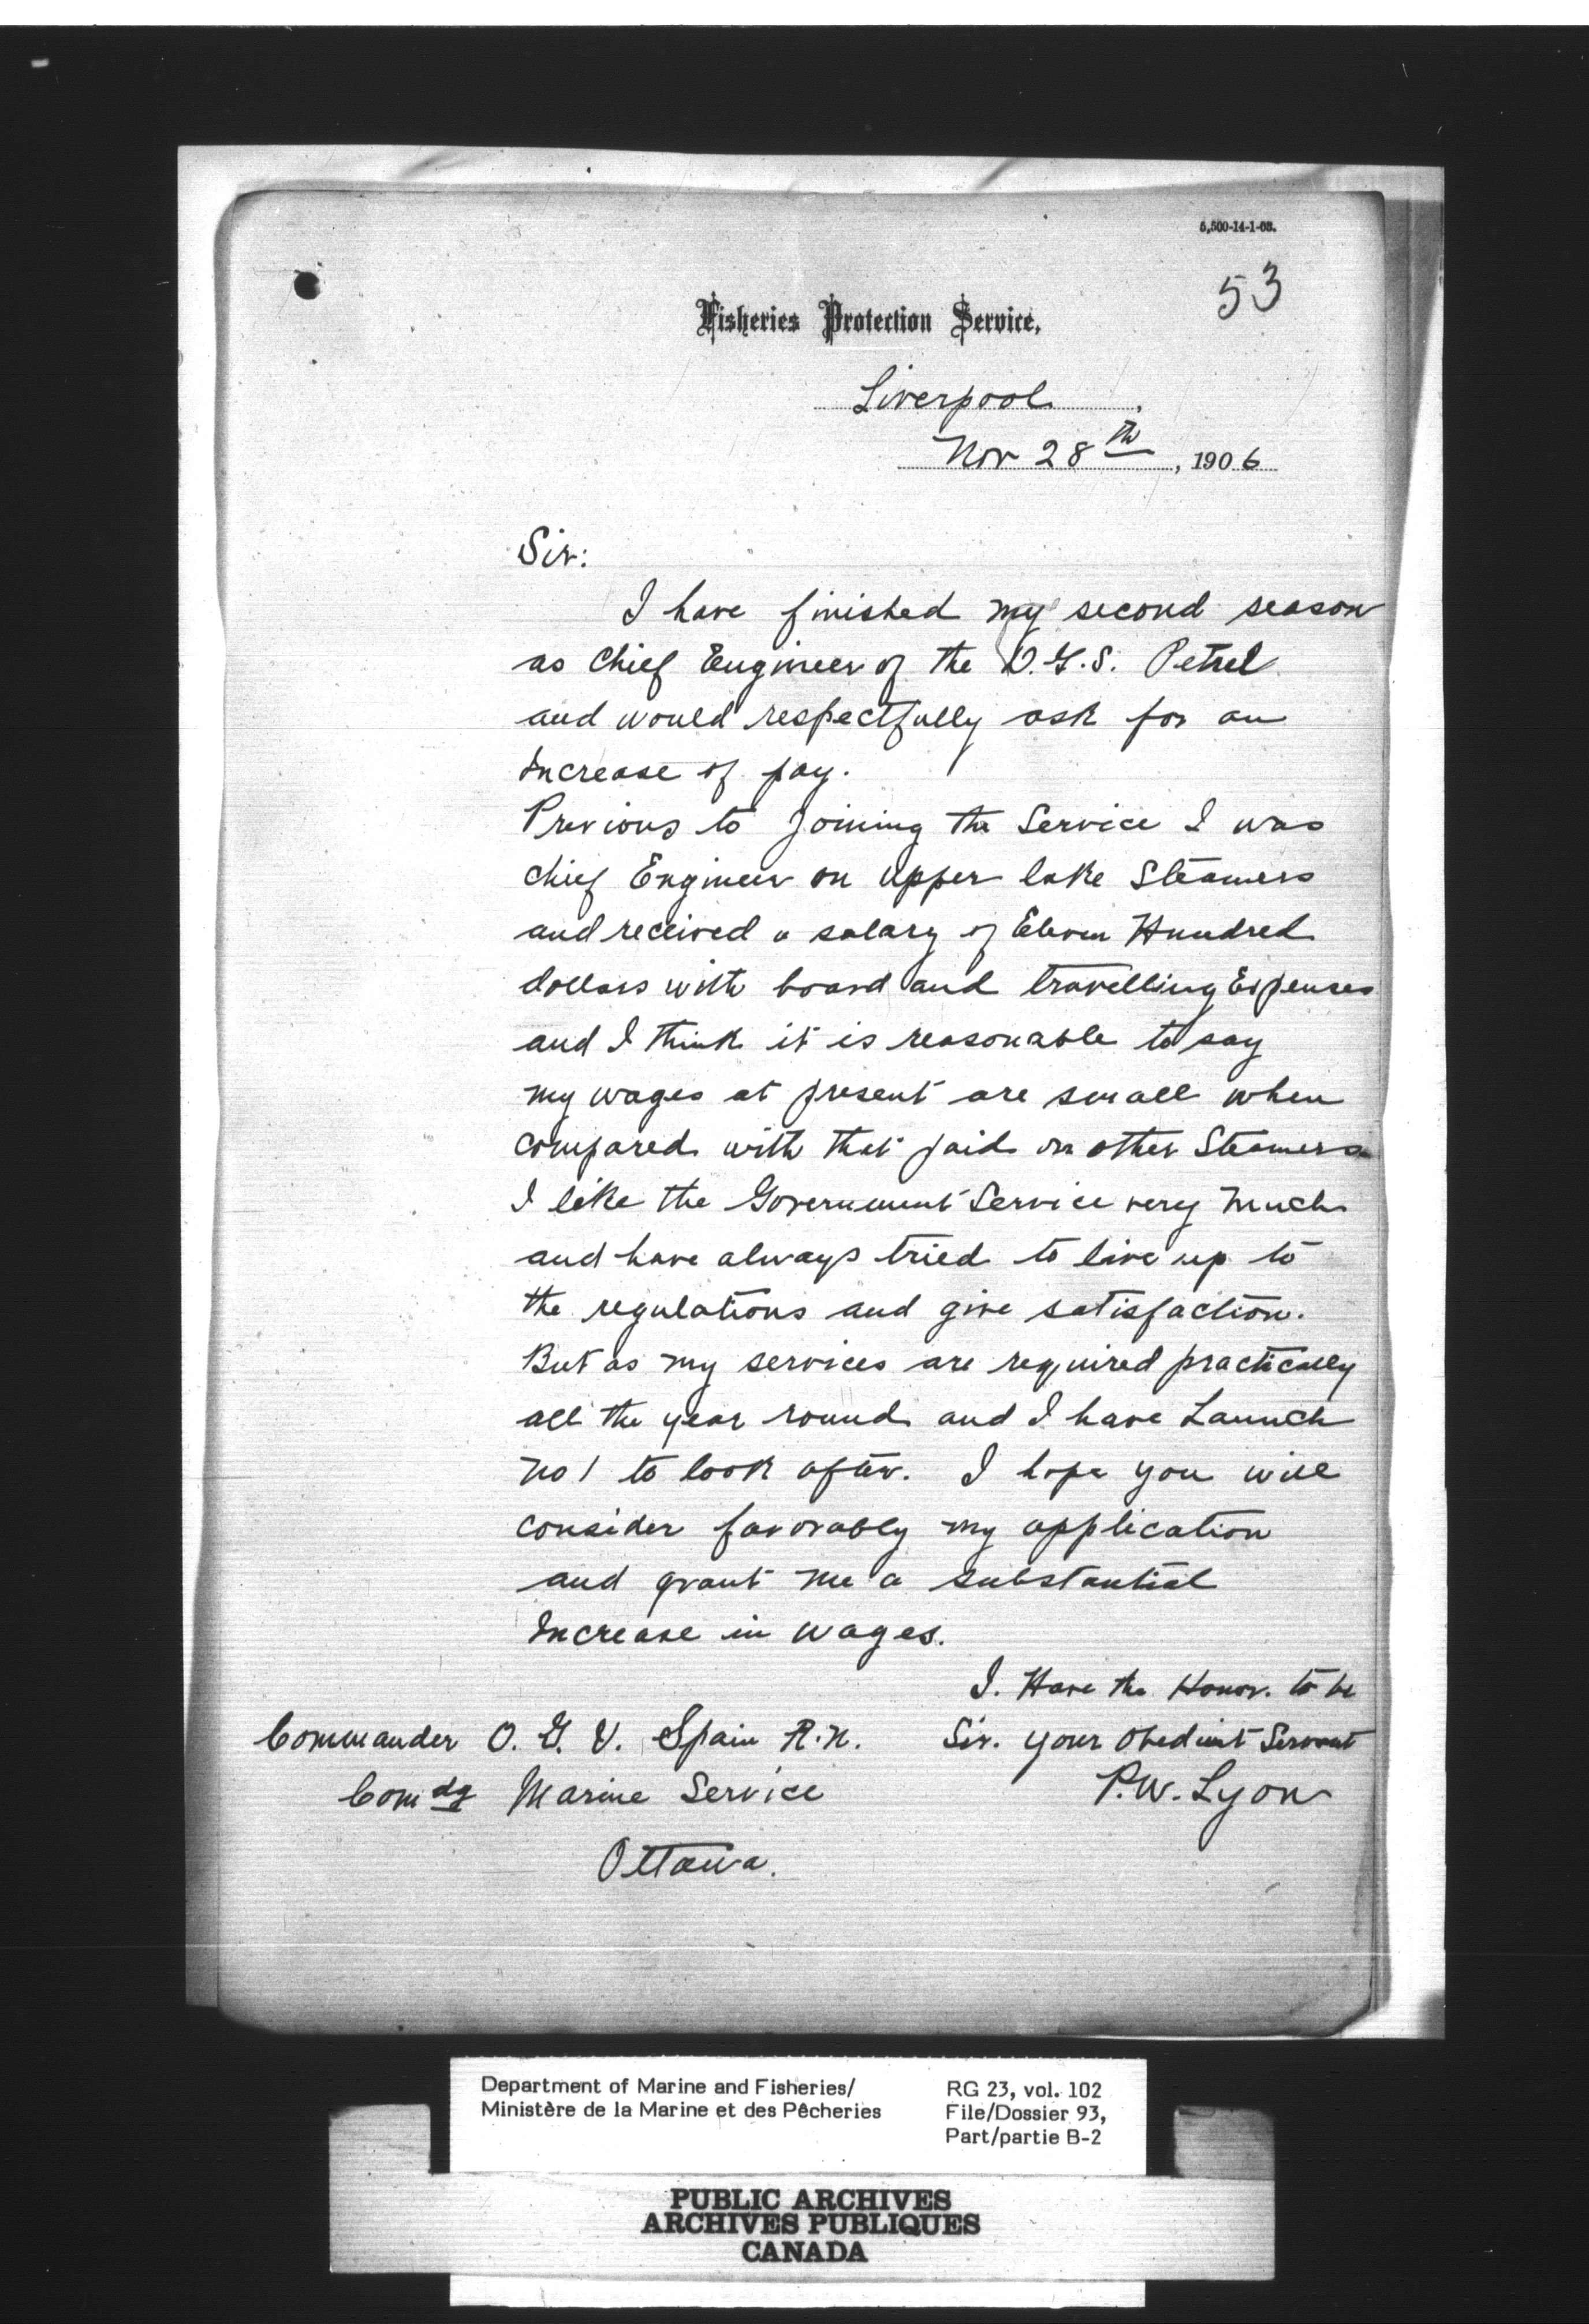 5,500-14-1-03.
53
Fisheries Protection Service.
Liverpool,
Nov 28th, 1906
Sir:
I have finished my second season
as Chief Engineer of the D.G.S. Petrel
and would respectfully ask for an
Increase of pay.
Previous to Joining the Service I was
Chief Engineer on upper lake Steamers
and received a salary of Eleven Hundred
dollars with board and travelling Expenses
and I think it is reasonable to say
my wages at present are small when
compared with that paid on other Steamers
I like the Government Service very much
and have always tried to live up to
the regulations and give satisfaction.
But as my services are required practically
all the year round and I have Launch
No 1 to look after. I hope you will
consider favorably my application
and grant me a substantial
Increase in wages.
I. Have the Honor. to be
Commander O. G. V. Spain R.N. Sir. your Obedient Servant
Comdg Marine Service P.W. Lyon
Ottawa.
Department of Marine and Fisheries/ RG 23, vol. 102
Ministère de la Marine et des Pêcheries File/Dossier 93,
Part/partie B-2
PUBLIC ARCHIVES
ARCHIVES PUBLIQUES
CANADA